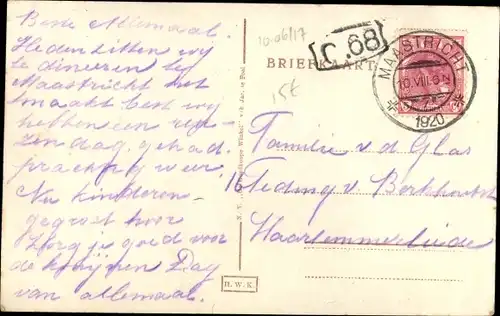 Beste Allemaal.
Heden zitten wij
te dineeren bij
Maastricht het
smaakt best wij
hebben een
zondag gehad.
prachtig weer.
Nu kinderen
gegroet hoor
Zorg je goed voor
de konijnen Dag
van allemaal.
10-06/17
C.68
BRIEFKAART
15t
MAASTRICHT
10.VIII. 6-7N
1920
Familie v. d. Glas
16 Teding v. Berkhout
Haarlemmerliede
H.W.K.